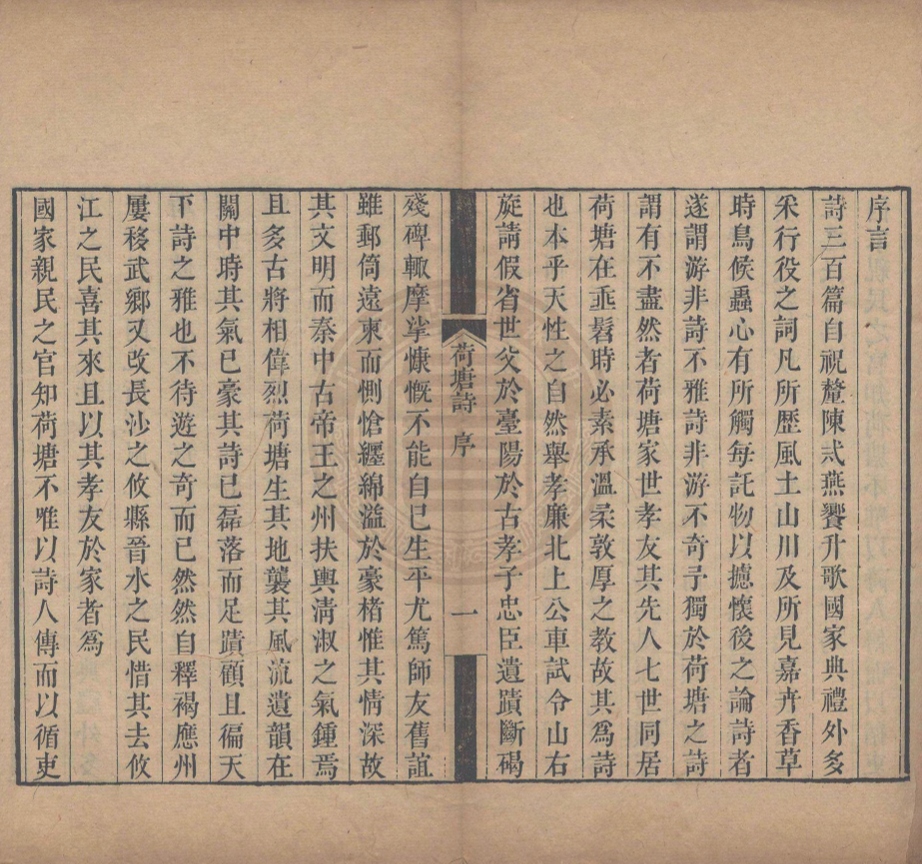 序言
詩三百篇自祝釐陳戒燕饗升歌國家典禮外多
釆行役之詞凡所歷風土山川及所見嘉卉香草
時鳥候蟲心有所觸每託物以攄懷後之論詩者
遂謂游非詩不雅詩非游不奇予獨於荷塘之詩
謂有不盡然者荷塘家世孝友其先人七世同居
荷塘在垂髫時必素承溫柔敦厚之教故其爲詩
也本乎天性之自然舉孝廉北上公車試令山右
旋請假省世父於臺陽於古孝子忠臣遺蹟斷碣
荷塘詩 序 一
殘碑輙摩挲慷慨不能自已生平尤篤師友舊誼
雖郵筒遠柬而惻愴纒綿溢於豪楮惟其情深故
其文明而秦中古帝王之州扶輿淸淑之氣鍾焉
且多古將相偉烈荷塘生其地襲其風流遺韻在
關中時其氣已豪其詩已磊落而足蹟顧且徧天
下詩之雅也不待遊之奇而已然然自釋褐應州
屢移武鄉又改長沙之攸縣晉水之民惜其去攸
江之民喜其來且以其孝友於家者爲
國家親民之官知荷塘不唯以詩人傳而以循吏